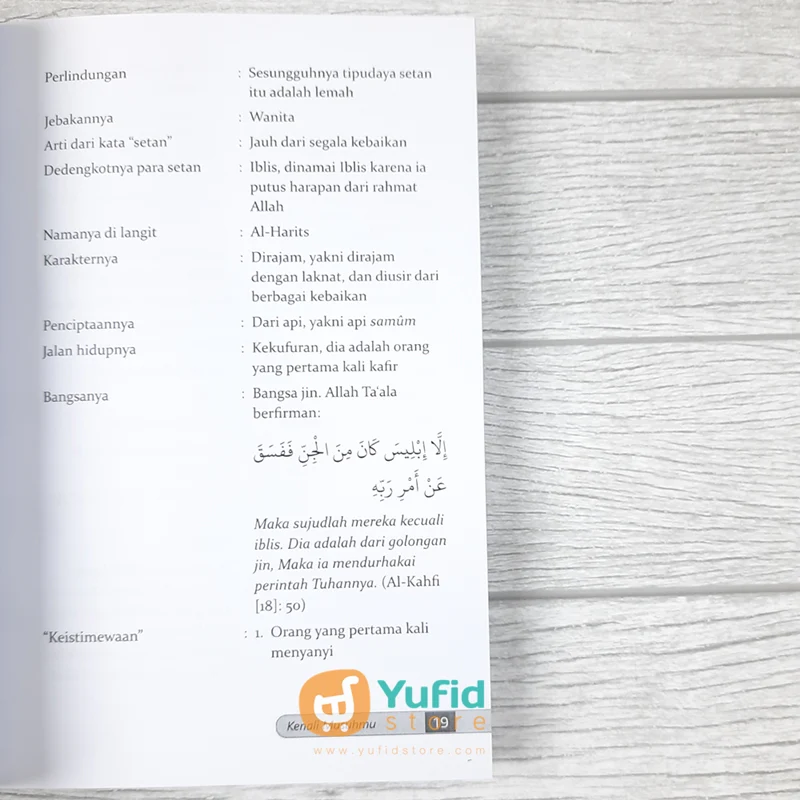 Perlindungan : Sesungguhnya tipudaya setan
itu adalah lemah
Jebakannya : Wanita
Arti dari kata “setan” : Jauh dari segala kebaikan
Dedengkotnya para setan : Iblis, dinamai Iblis karena ia
putus harapan dari rahmat
Allah
Namanya di langit : Al-Harits
Karakternya : Dirajam, yakni dirajam
dengan laknat, dan diusir dari
berbagai kebaikan
Penciptaannya : Dari api, yakni api samûm
Jalan hidupnya : Kekufuran, dia adalah orang
yang pertama kali kafir
Bangsanya : Bangsa jin. Allah Ta'ala
berfirman:
إِلَّا إِبْلِيسَ كَانَ مِنَ الْجِنِّ فَفَسَقَ
عَنْ أَمْرِ رَبِّهِ
Maka sujudlah mereka kecuali
iblis. Dia adalah dari golongan
jin, Maka ia mendurhakai
perintah Tuhannya. (Al-Kahfi
[18]: 50)
“Keistimewaan” : 1. Orang yang pertama kali
menyanyi
Yufid
store
Kenali 19
www.yufidstore.com